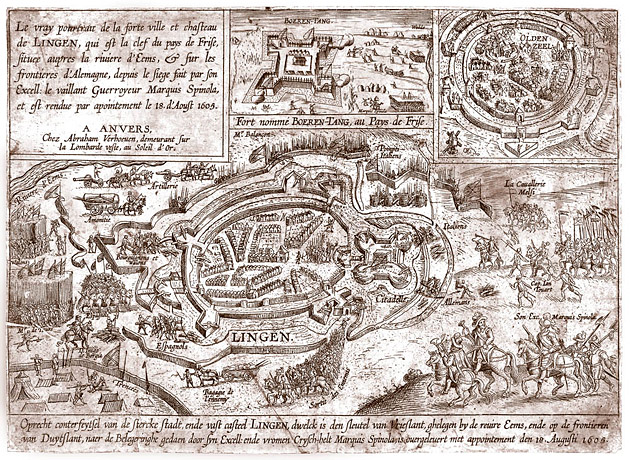 Le vray pourtrait de la forte ville et chasteau
de LINGEN, qui est la clef du pays de Frise,
situee aupres la riviere d'Eems, & sur les
frontieres d'Alemagne, depuis le siege fait par son
Excell: le vaillant Guerroyeur Marquis Spinola,
et est rendue par apointement le 18. d'Aoust 1605.
A ANVERS,
Chez Abraham Verhoeven, demeurant sur
la Lombarde veste, au Soleil d'Or.
BOEREN-TANG.
Fort nommé BOEREN-TANG, au Pays de Frise
OLDEN
ZEEL.
Mr. Balançon
Artillerie
Italiens
La Cavallerie
Italiens
Citadelle
Allemans
Son Exc. Marquis Spinola
LINGEN.
Espagnols
Bagage de
Oprecht conterfeytsel van de stercke stadt, ende vast casteel LINGEN, dwelck is den sleutel van Vrieslant, ghelegen by de reuire Eems, ende op de frontieren
van Duytslant, naer de Belegeringhe gedaen door syn Excell: ende vromen Crysch-helt Marquis Spinola, is overgelevert met appointement den 18 Augusti 1605.